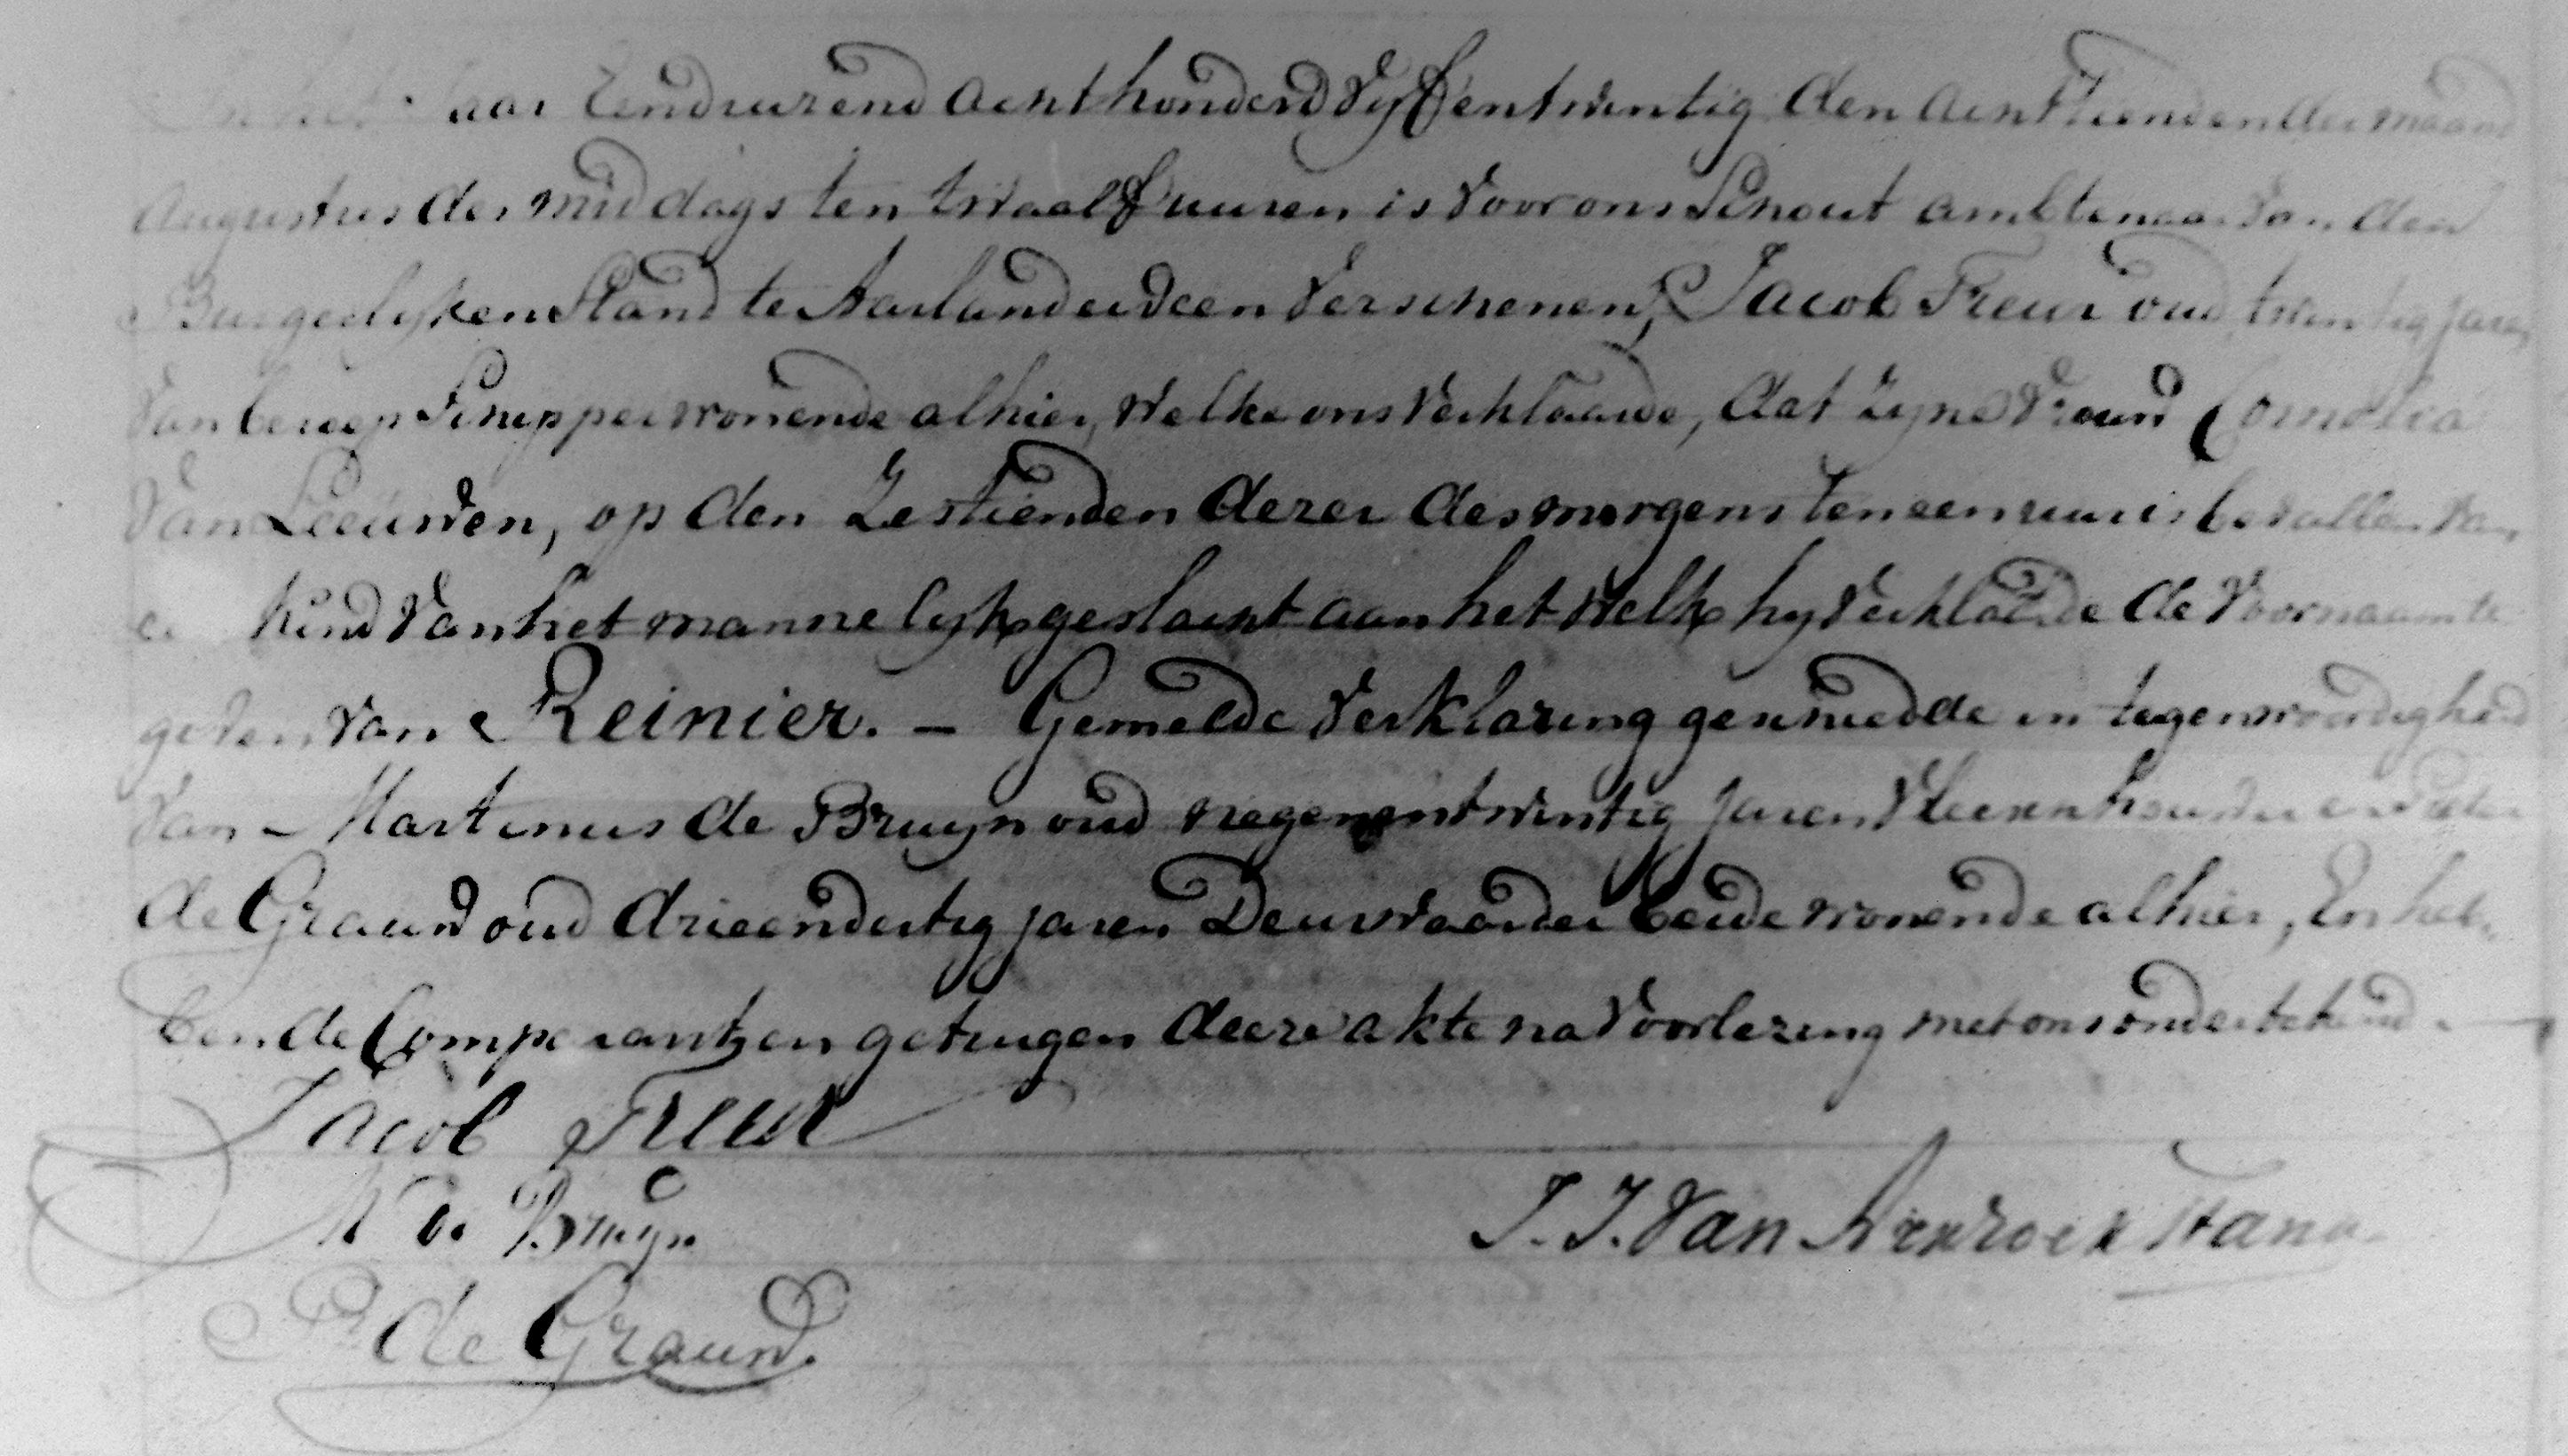 In het Jaar Eenduizend achthonderd vyfentwintig den achttienden der maand
Augustus des middags ten twaalf uuren is voor ons Schout ambtenaar van den
Burgerlyken Stand te Aarlanderveen verschenen, Jacob Treur oud twintig jaren
van beroep Schipper wonende alhier, welke ons verklaarde, dat zyne vrouw Cornelia
van Leeuwen, op den Zestienden dezer des morgens ten een uur is bevallen van
een kind van het mannelyk geslacht aan het welk hy verklaarde de voornaam te
geven van Reinier. - Gemelde verklaring geschiedde in tegenwoordigheid
van Martinus de Bruyn oud negenentwintig jaren Vleeschhouwer en Pieter
de Graauw oud drieendertig jaren Deurwaarder beide wonende alhier, En heb
ben de Comparant en getuigen deeze akte na voorlezing met ons ondertekend
Jacob Treur
M de Bruyn
J. J. Van
P de Graauw